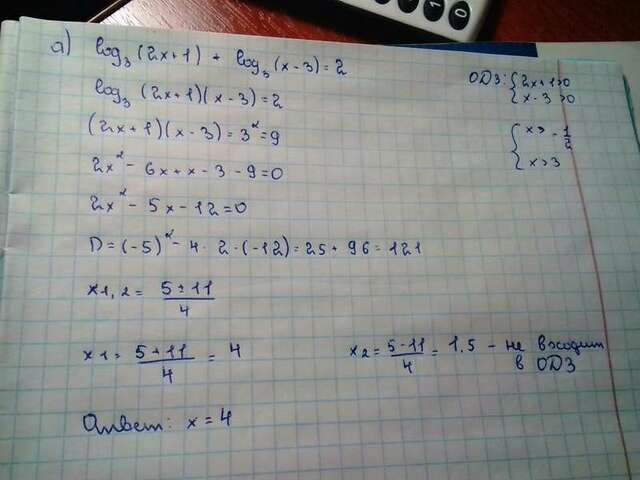 а) log₃(2x+1) + log₃(x-3)=2
ОДЗ: {2x+1>0
{x-3>0
log₃(2x+1)(x-3)=2
{x>-1/2
{x>3
(2x+1)(x-3)=3²=9
2x²-6x+x-3-9=0
2x²-5x-12=0
D=(-5)²-4·2·(-12)=25+96=121
x1,2= 5±11/4
x1= 5+11/4 = 4
x2= 5-11/4 = 1.5 - не входит
в ОДЗ
Ответ: x=4